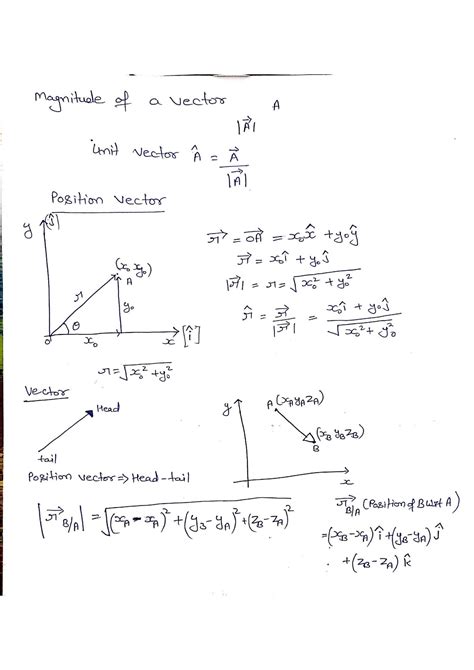 Magnitude of a vector A
|A⃗|
Unit vector Â = A⃗ / |A⃗|
Position vector
y [ĵ]
(x₀ y₀)
A
r
y₀
θ
0 x₀ x [î]
r = √(x₀² + y₀²)
r⃗ = OA⃗ = x₀x̂ + y₀ŷ
r⃗ = x₀î + y₀ĵ
|r⃗| = r = √(x₀² + y₀²)
r̂ = r⃗ / |r⃗| = (x₀î + y₀ĵ) / √(x₀² + y₀²)
Vector
Head
tail
Position vector ⇒ Head-tail
y
A (xA yA zA)
(xB yB zB)
B
x
|r⃗B/A| = √((xA - xA)² + (yB - yA)² + (zB - zA)²)
r⃗B/A (Position of B wrt A)
= (xB - xA) î + (yB - yA) ĵ
+ (zB - zA) k̂